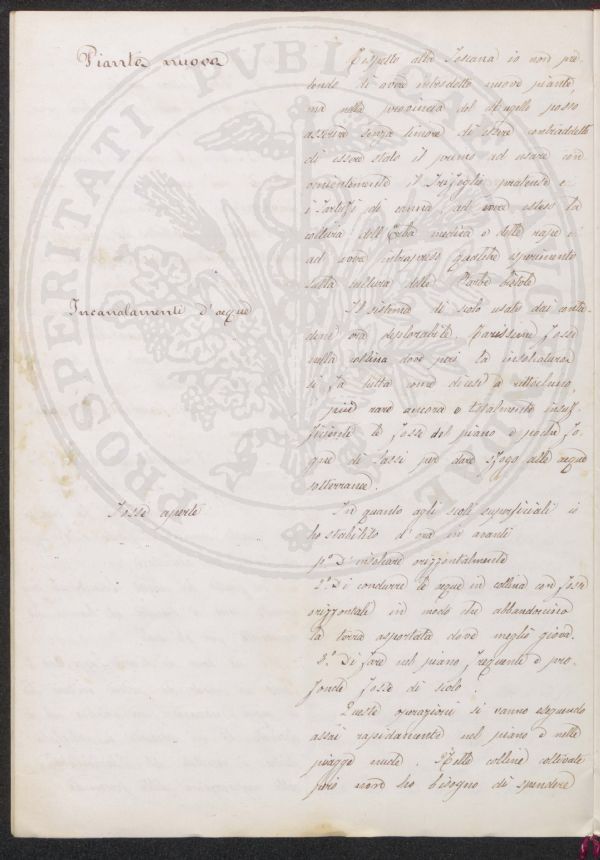 Piante nuove
Rispetto alla Toscana io non pre-
tendo di avere introdotto nuove piante,
ma nella provincia del Mugello posso
asserire senza timore di essere contraddetto
di essere stato il primo ad usare con
il Trifoglio pratense e
i Tartufi di canna, ad avere esteso la
coltura dell'Erba medica e delle rape e
ad avere intrapreso qualche esperimento
sulla cultura delle Barbe bietole
Incanalamento d'acque
Il sistema di scolo usato dai conta-
dini era deplorabile. Rarissime fosse
nella collina dove però la insolcatura
si fa tutta come dicesi a rittochino,
più rare ancora e totalmente insuf-
ficienti le fosse del piano e poche fo-
gne di sassi per dare sfogo alle acque
sotterranee.
Fosse aperte
In quanto agli scoli superficiali io
ho stabilito d'ora in avanti
1º Di insolcare orizzontalmente
2º Di condurre le acque in collina con fosse
orizzontali in modo che abbandonino
la terra asportata dove meglio giova.
3º Di fare nel piano frequenti e pro-
fonde fosse di scolo.
Queste operazioni si vanno eseguendo
assai rapidamente nel piano e nelle
piagge nude. Nelle colline coltivate
però non ho bisogno di spendere
PROSPERITATI PUBLICAE